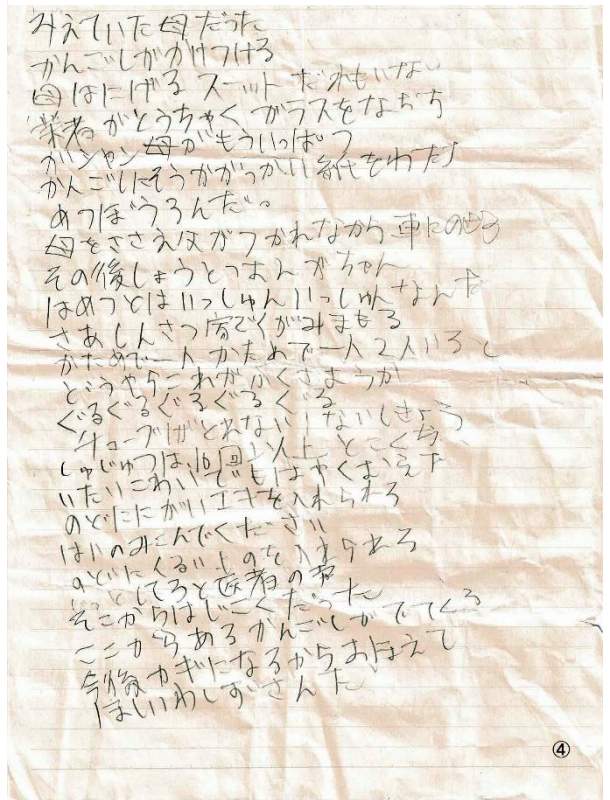 みえていた母だった
かんごしがかけつける
母はにげる スーット だれもいない
業者がとうちゃく ガラスをなおす
ガシャン 母がもういっぱつ
かんごしにそうが 紙をわたす
めつぼうろんだ。
母をささえ父がつかれながら車にのせる
その後しょうとつまんがちゃん
はめつとはいっしゅんいっしゅんなんだ
さあしんさつ房でくがみまもる
かためで一人かためで一人2人いると
どうやらこれがふくさようか
ぐるぐるぐるぐるぐる
チューブがとれないないしきょう
しゅじゅつは、10回以上とこくち
いたいこわいでもはやくむかえた
のどににがいエキを入れられる
はいのみこんでください
のどにくるいものを入れられる
じっとしてろと医者の声
そこからはじごくだった
ここからあるかんごしがでてくる
今後カギになるからおぼえて
ほしいわしずさんだ
④